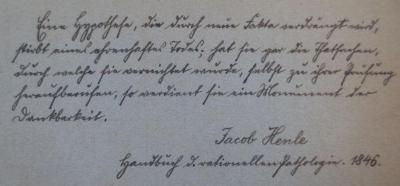 Eine Hypothese, die durch neue Fakta verdrängt wird,
stirbt eines ehrenhaftes Todes; hat sie gar die Thatsachen,
durch welche sie vernichtet wurde, selbst zu ihrer Prüfung
heraufberufen, so verdient sie ein Monument der
Dankbarkeit.
Jacob Henle
Handbuch d. rationellen Pathologie. 1846.